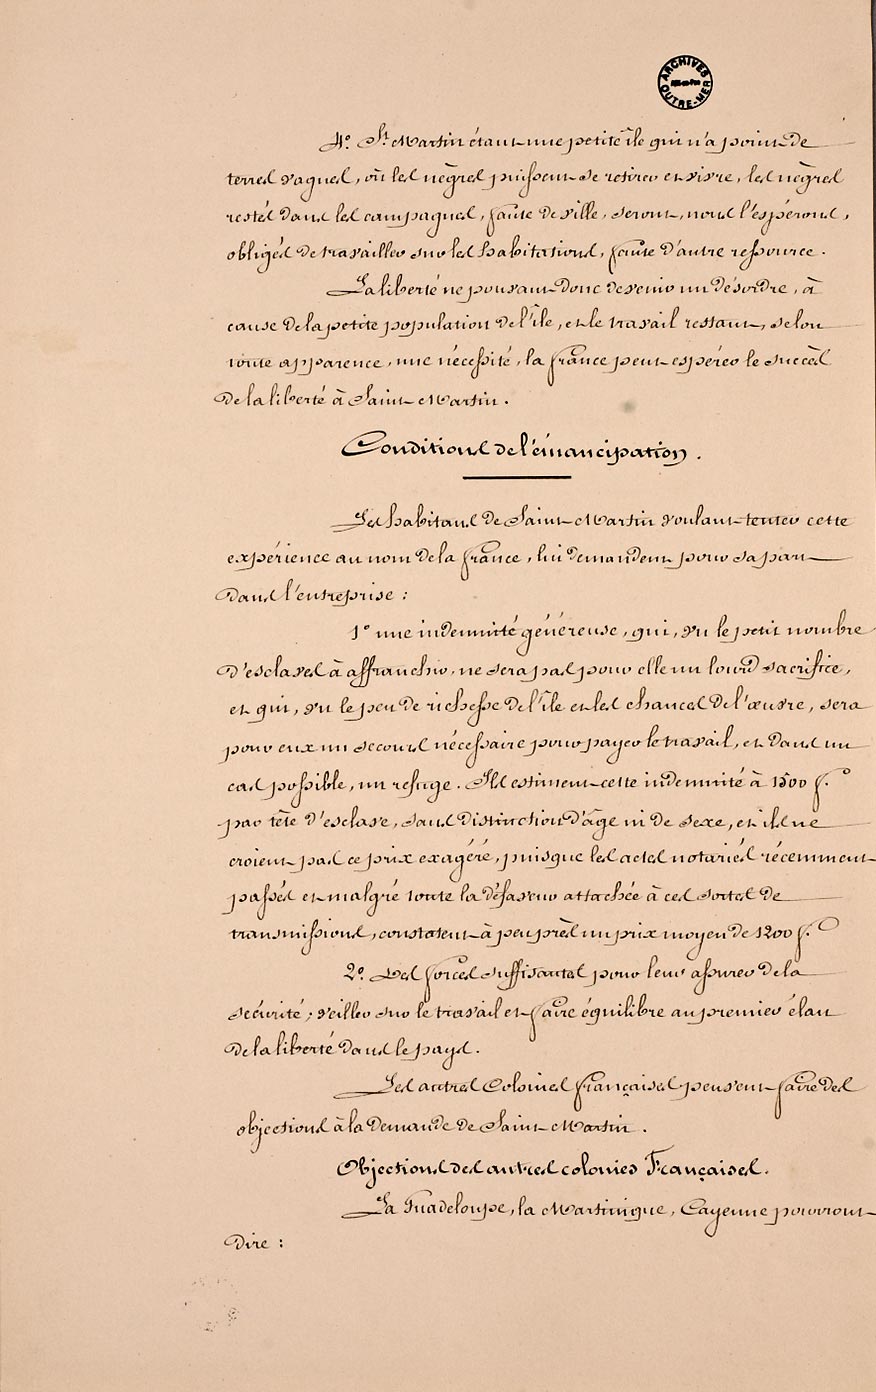 ARCHIVES
OUTRE-MER
4.° St. Martin étant une petite île qui n'a point de
terres vagues, où les nègres puissent se retirer et vivre, les nègres
restés dans les campagnes, faute de ville, seront, nous l'espérons,
obligés de travailler sur les habitations, faute d'autre ressource.
La liberté ne pouvant donc devenir un désordre, à
cause de la petite population de l'île, et le travail restant, selon
toute apparence, une nécessité, la france peut espérer le succès
de la liberté à Saint-Martin.
Conditions de l'émancipation.
Les habitans de Saint-Martin voulant tenter cette
expérience au nom de la france, lui demandent pour sa part
dans l'entreprise :
1° une indemnité généreuse, qui, vu le petit nombre
d'esclaves à affranchir, ne sera pas pour elle un lourd sacrifice,
et qui, vu le peu de richesse de l'île et les chances de l'œuvre, sera
pour eux un secours nécessaire pour payer le travail, et dans un
cas possible, un refuge. Ils estiment cette indemnité à 1500 f.
par tête d'esclave, sans distinction d'âge ni de sexe, et ils ne
croient pas ce prix exagéré, puisque les actes notariés récemment
passés et malgré toute la défaveur attachée à ces sortes de
transmissions, constatent à peu près un prix moyen de 1200 f.
2° Des forces suffisantes pour leur assurer de la
sécurité, veiller sur le travail et faire équilibre au premier élan
de la liberté dans le pays.
Les autres Colonies françaises peuvent faire des
objections à la demande de Saint-Martin.
Objections des autres colonies Françaises.
La Guadeloupe, la Martinique, Cayenne pourront
dire :